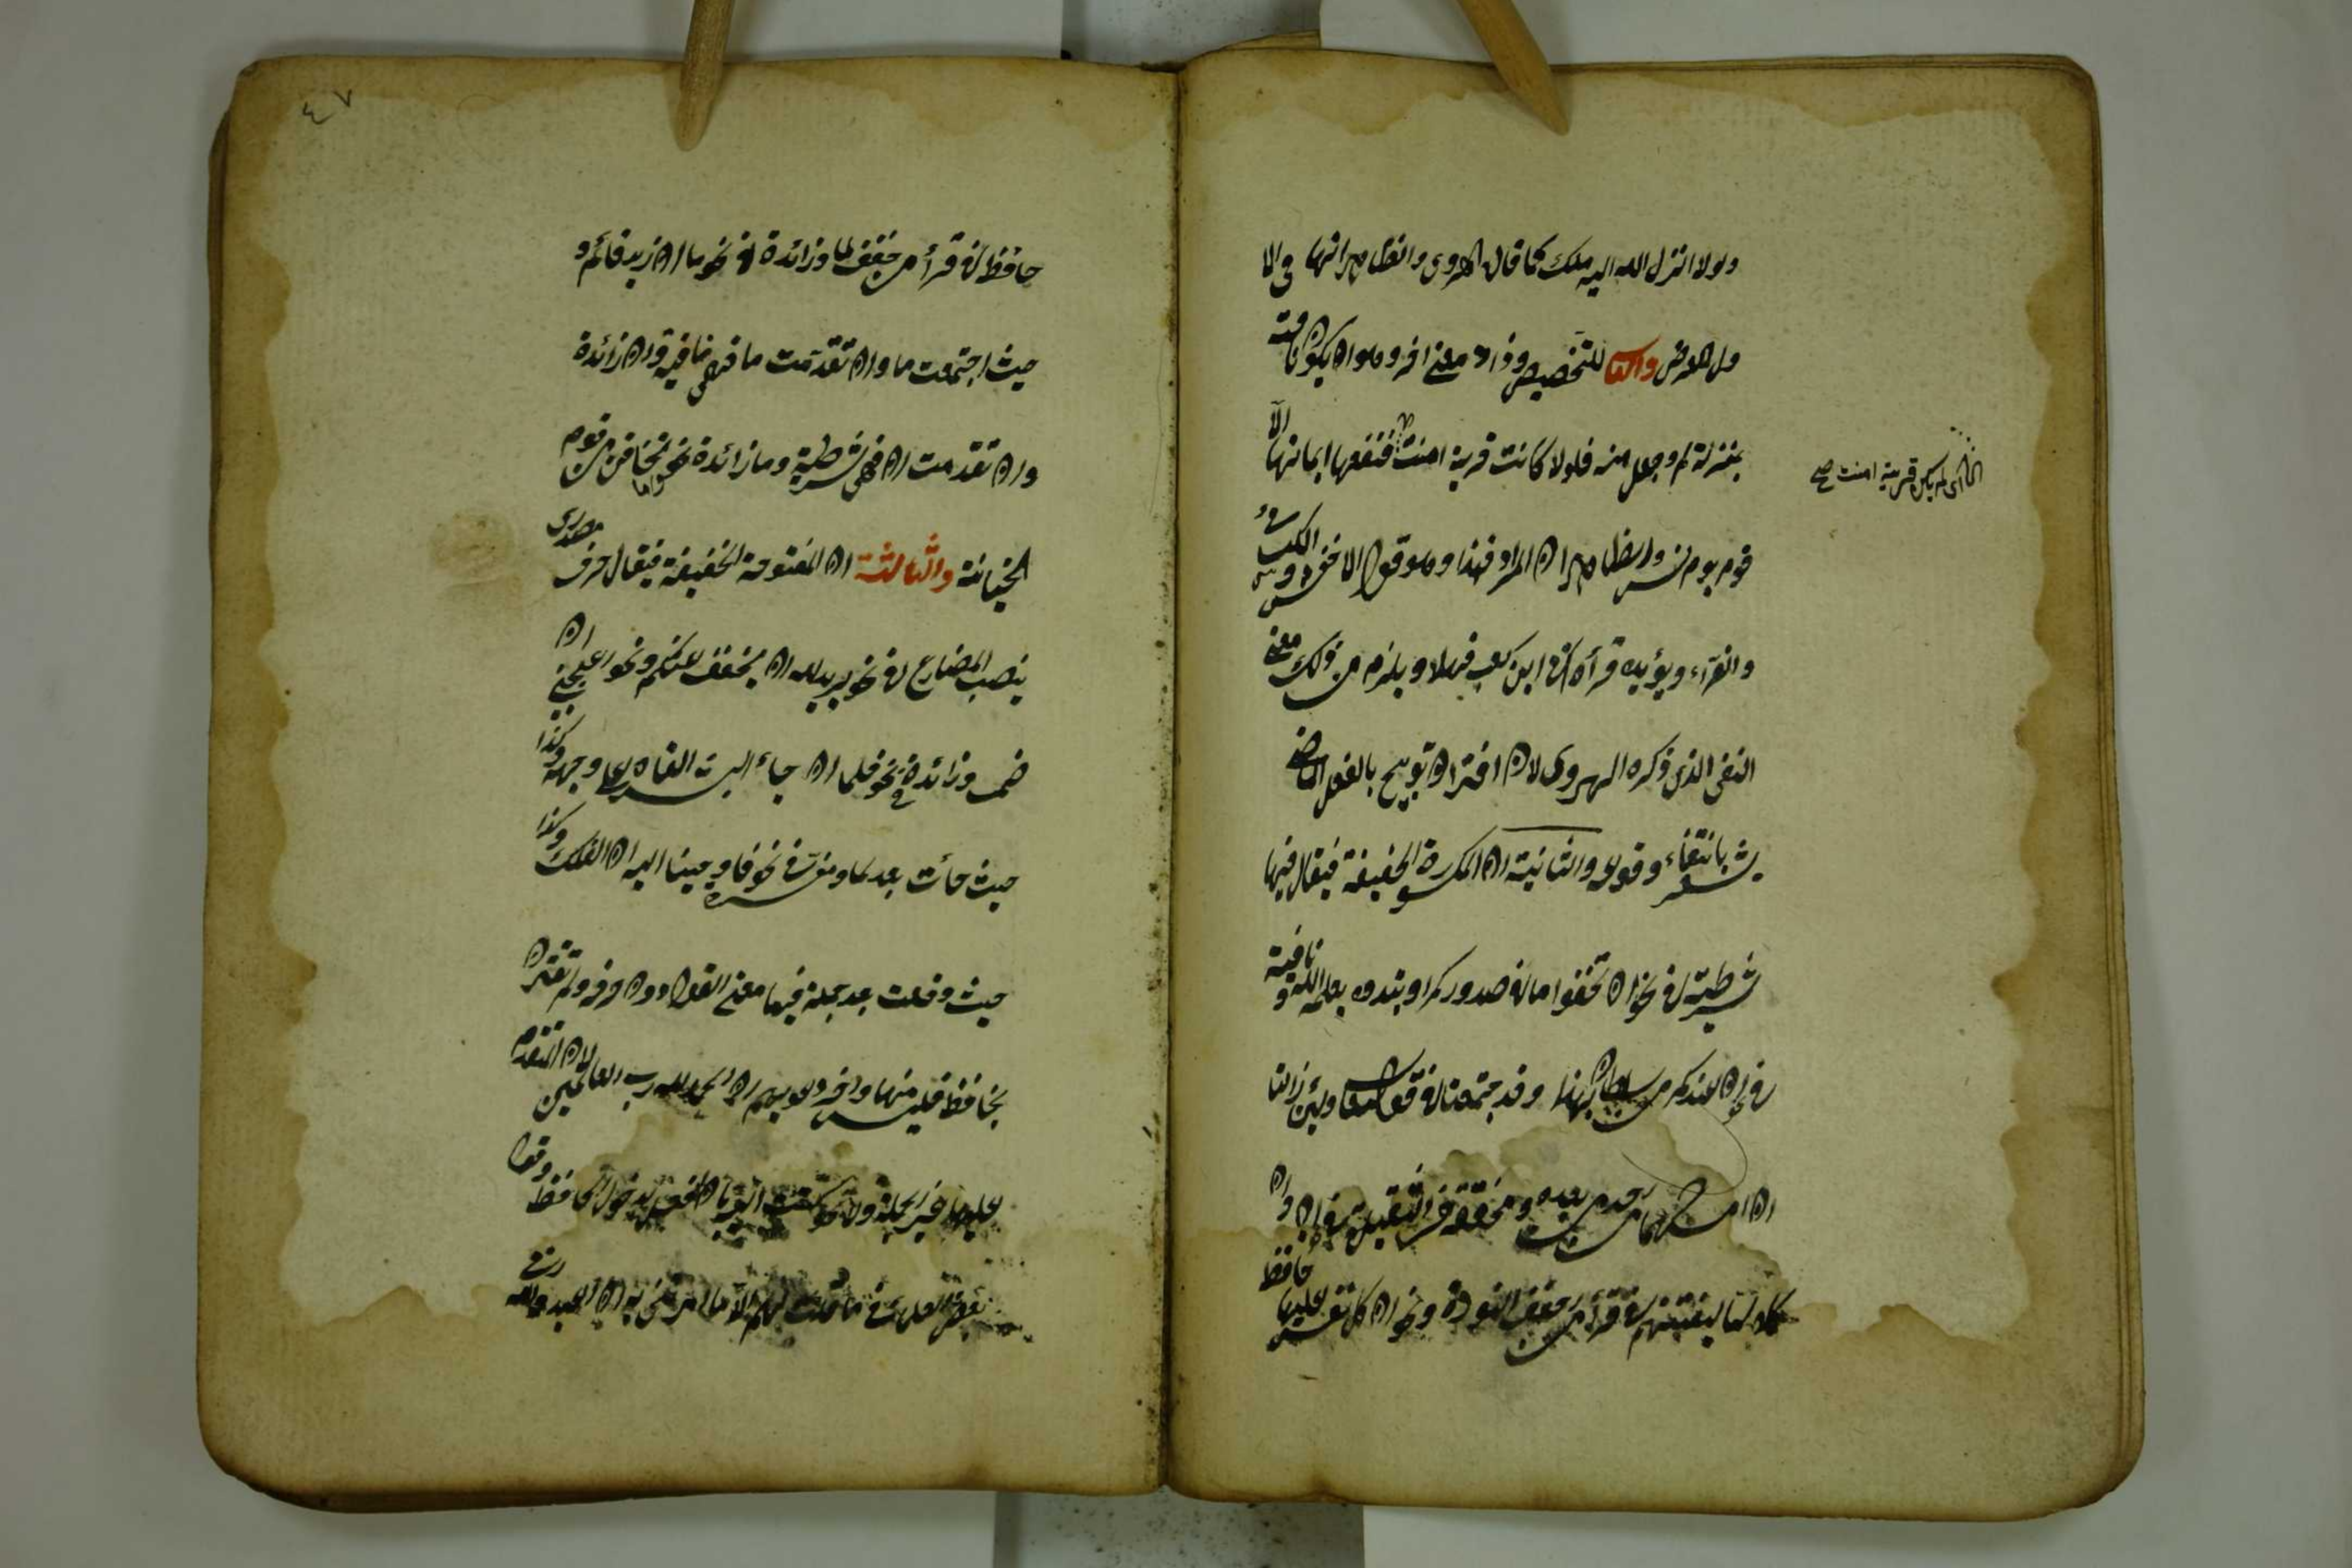 ولولا انزل الله اليه ملك كما قال الهروى والظاهر انها فى الا
ول للعرض والثا للتخصيص وزاد معنى اخر وهو ان يكون نافية
بمنزلة لم وجعل منه فلولا كانت قرية امنت فنفعها ايمانها الا
اى لم يكن قرية امنت صح
قوم يونس والظاهر ان المراد فهلا وهو قول الاخفش والكسائى
والفراء ويؤيده قرأة ابى ابن كعب فهلا ويلزم من ذلك معنى
النفى الذى ذكره الهروى لان اقتران توبيخ بالفعل الماضى
يشعر بانتفاء وقوعه والثانية ان المكسورة الخفيفة فيقال فيها
شرطية فى نحو ان تخفوا ما فى صدوركم او تبدوه يعلمه الله ونافية
فى نحو ان عندكم من سلطان بهذا وقد اجتمعتا فى قوله تعالى ولئن زالتا
ان امسكهما من احد من بعده ومخففة من الثقيلة فى نحو وان
كلا لما ليوفينهم فى قرأة من خفف النون ونحو ان كل نفس لما عليها حافظ
٤٧
حافظ فى قرأة من خفف لما وزائدة فى نحو ما ان زيد قائم و
حيث اجتمعت ما وان تقدمت ما فهى نافية وان زائدة
وان تقدمت ان فهى شرطية وما زائدة نحو واما تخافن من قوم
خيانة والثالثة ان المفتوحة الخفيفة فيقال حرف مصدرى
ينصب المضارع فى نحو يريد الله ان يخفف عنكم ونحو اعجبنى ان
صمت وزائدة فى نحو فلما ان جاء البشير القاه على وجهه وكذا
حيث جأت بعد لما ومفسرة فى نحو فاوحينا اليه ان اصنع الفلك وكذا
حيث وقعت بعد جملة فيها معنى القول دون حروفه ولم تقترن
بخافظ فليس منها واخر دعويهم ان الحمد لله رب العالمين لان المتقدم
عليها غير الجملة ولا نحو كتبت اليه بان افعل لدخول الخافظ وقول
بعض العلماء فى ما قلت لهم الا ما امرتنى به ان اعبدوا الله